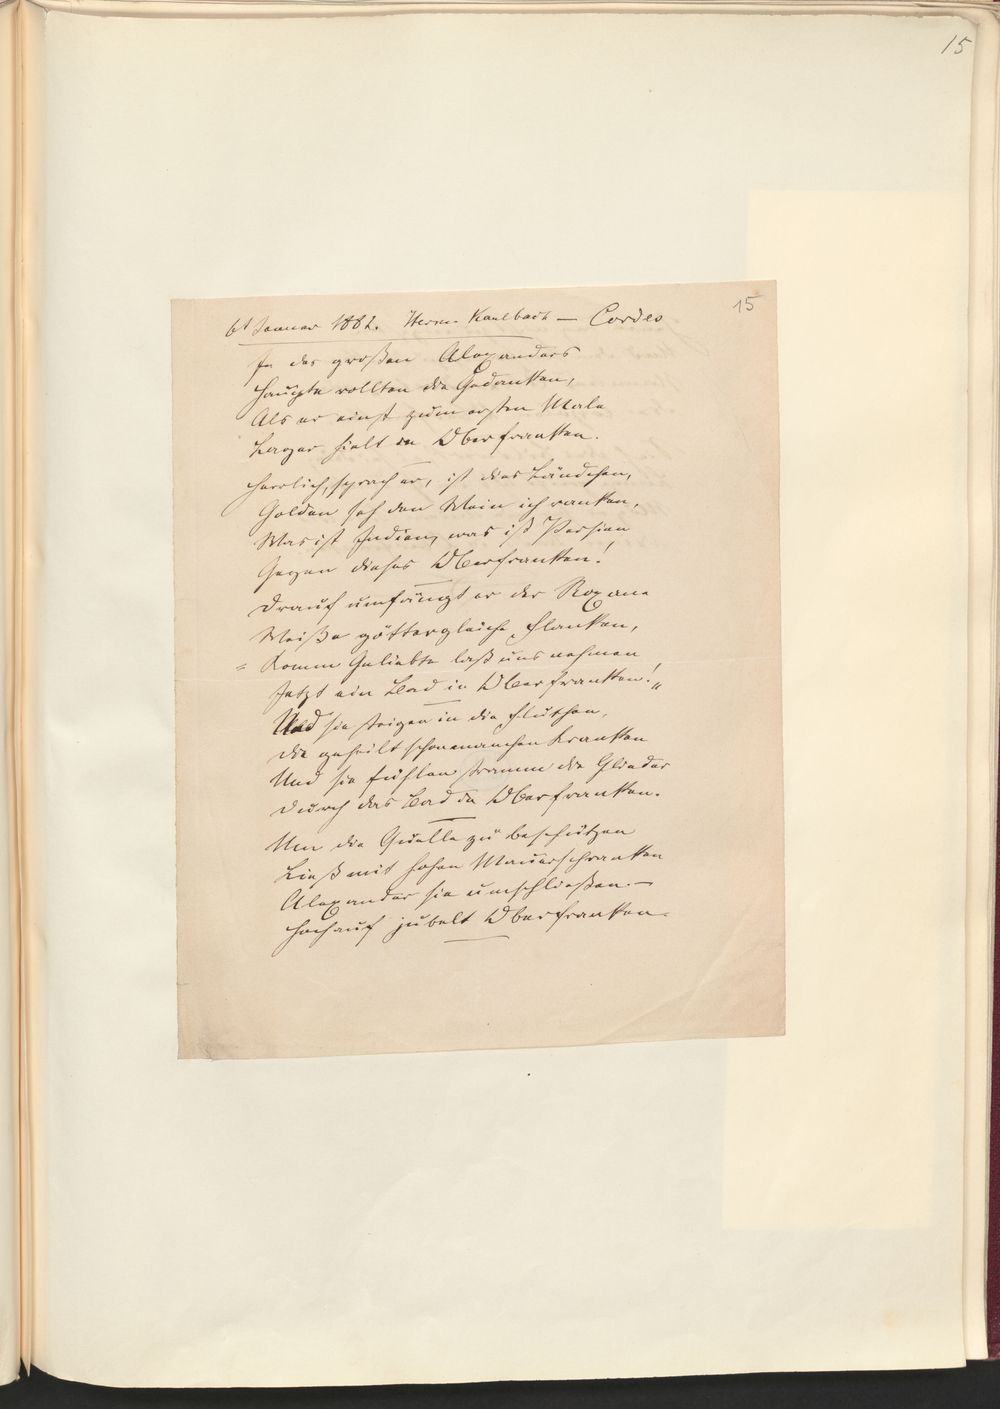 15
15
6t Januar 1882. Herrn Kaulbach — Cordes
In des großen Alexanders
Haupte rollten die Gedanken,
Als er einst zum ersten Male
Lager hielt in Oberfranken.
Herrlich, sprach er, ist dies Ländchen,
Golden seh den Wein ich ranken,
Was ist Indien, was ist Persien
Gegen dieses Oberfranken!
Drauf umfängt er der Roxane
Weiße göttergleiche Flanken,
"Komm Geliebte laß uns nehmen
Jetzt ein Bad in Oberfranken!"
Und sie steigen in die Fluthen,
Die geheilt schon manchen Kranken
Und sie fühlen stramm die Glieder
Durch das Bad in Oberfranken.
Um die Quelle zu beschützen
Ließ mit hohen Mauerschranken
Alexander sie umschließen. —
Hochauf jubelt Oberfranken.